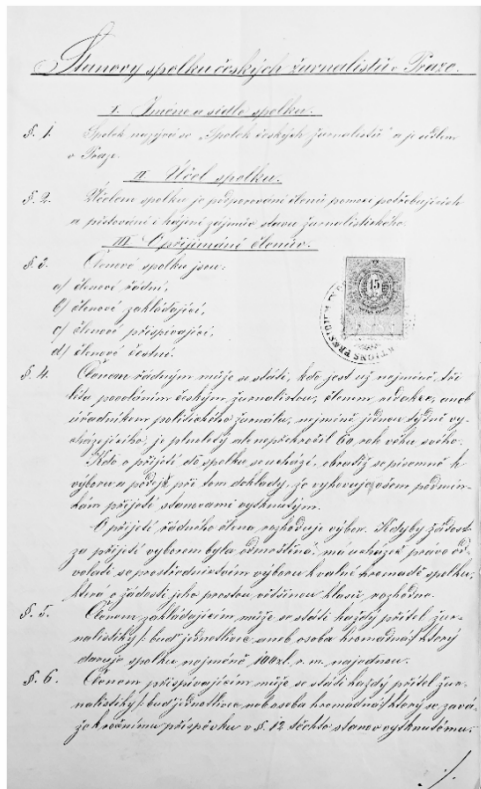 Stanovy spolku českých žurnalistů v Praze.
I. Jméno a sídlo spolku.
§. 1. Spolek nazývá se „Spolek českých žurnalistů" a je sídlem
v Praze.
II. Účel spolku.
§. 2. Účelem spolku je podporování členů pomoci potřebujících
a pěstování i hájení zájmů stavu žurnalistického.
III. O přijímání členův.
§. 3. Členové spolku jsou:
a/ členové řádní,
b/ členové zakládající,
c/ členové přispívající,
d/ členové čestní.
15
§. 4. Členem řádným může se státi, kdo jest už nejméně tři
léta povoláním českým žurnalistou, členem redakce, aneb
úředníkem politického žurnálu, nejméně jednou týdně vy-
cházejícího, je plnoletý ale nepřekročil 60. rok věku svého.
Kdo o přijetí do spolku se uchází, obrátiž se písemně k
výboru a podejž při tom doklady, že vyhovuje všem podmín-
kám přijetí stanovami vytknutým.
O přijetí řádného člena rozhoduje výbor. Kdyby žádost
za přijetí výborem byla odmítnuta, má uchazeč právo od-
volati se prostřednictvím výboru k valné hromadě spolku,
která o žádosti jeho prostou většinou hlasů rozhodne.
§. 5. Členem zakládajícím může se státi každý přítel žur-
nalistiky /: buď jednotlivec aneb osoba hromadná :/ který
daruje spolku nejméně 100 zl. r. m. najednou.
§. 6. Členem přispívajícím může se státi každý přítel žur-
nalistiky /: buď jednotlivec neb osoba hromadná :/ který se zavá-
že k ročnímu příspěvku v §. 12 těchto stanov vytknutému.
./.